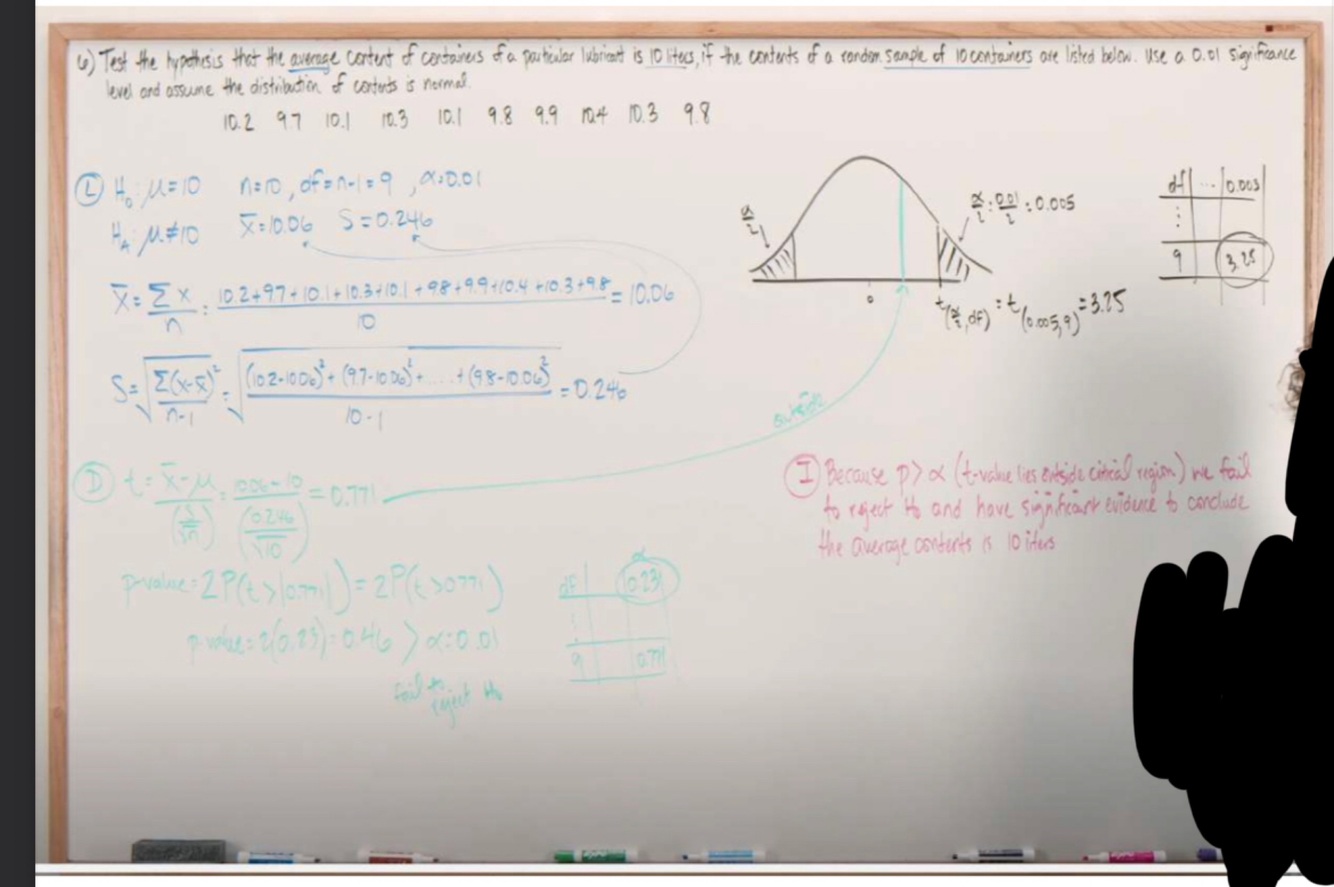 6) Test the hypothesis that the average content of containers of a particular lubricant is 10 liters, if the contents of a random sample of 10 containers are listed below. Use a 0.01 significance
level and assume the distribution of contents is normal.
10.2 9.7 10.1 10.3 10.1 9.8 9.9 10.4 10.3 9.8
H₀: μ=10 n=10, df=n-1=9, α=0.01
H_A: μ≠10 x̄=10.06 S=0.246
x̄ = Σx/n = (10.2+9.7+10.1+10.3+10.1+9.8+9.9+10.4+10.3+9.8)/10 = 10.06
S = √(Σ(x-x̄)²/(n-1)) = √(((10.2-10.06)²+(9.7-10.06)²+....+(9.8-10.06)²)/(10-1)) = 0.246
α/2
α/2 = 0.01/2 = 0.005
0
t(α/2, df) = t(0.005,9) = 3.25
df ...
⋮
9 3.25
D t = (x̄-μ)/(s/√n) = (10.06-10)/(0.246/√10) = 0.771
outside
p-value = 2P(t>|0.771|) = 2P(t>0.771)
p-value = 2(0.23) = 0.46 > α=0.01
fail to
reject H₀
α
df 0.23
9 0.771
I Because p>α (t-value lies outside critical region) we fail
to reject H₀ and have significant evidence to conclude
the average contents is 10 liters